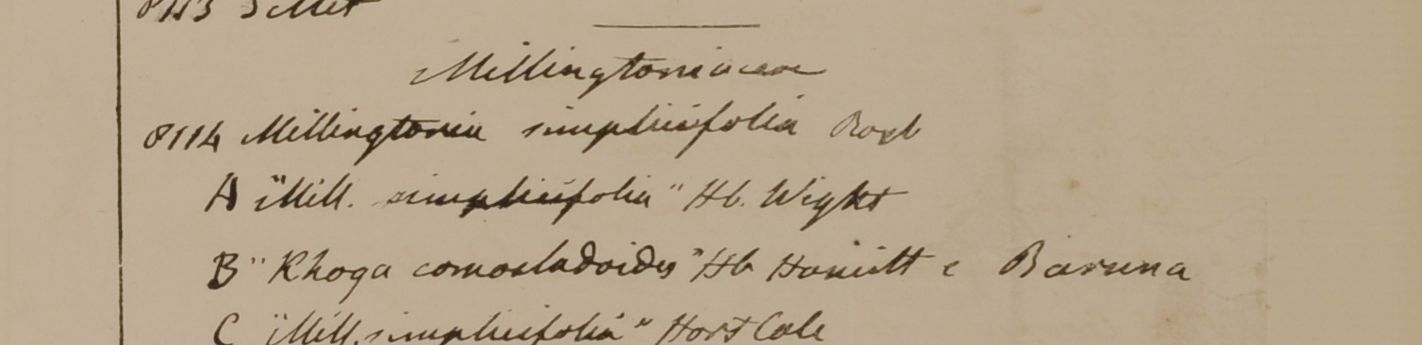 8113
Millingtoniaceae
8114 Millingtonia simplicifolia Roxb
A "Mill. simplicifolia" Hb. Wight
B "Khoga comocladoides" Hb Hamilt e Baruna
C "Mill. simplicifolia" Hort Calc